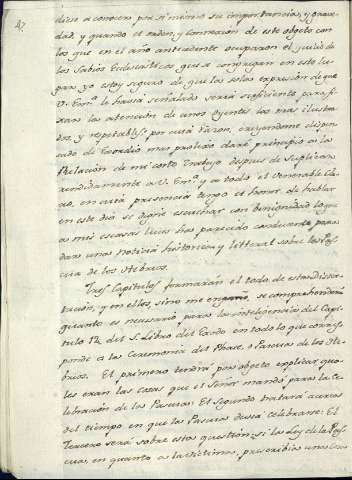 dicio a conocer por si mismo su importancia, y grave-
dad, y quando el orden, y connexion de este objeto con
los que en el año antecedente ocuparon el juicio de
los Sabios Eclesiasticos que se congregan en este lu-
gar yo estoy seguro de que la sola expresion de que
V. Emª. le havia señalado seria suficiente para fi-
xar la atencion de unos oyentes los mas ilustra-
dos, y respetables, por cuia razon, creyendome dispen-
sado de Exordio mas prolixo daré principio a la
Relacion de mi corto trabajo despues de suplicar
rendidamente a V. Emª. y a todo el venerable Cle-
ro, en cuia presencia tengo el honor de hablar
en este dia se digne escuchar con benignidad lo que
a mis escasas luces ha parecido conducente para
daros una noticia historica y litteral sobre la Pas-
cua de los Hebreos.
Tres Capitulos formarán el todo de esta Diser-
tacion, y en ellos, sino me engaño, se comprehenderá
quanto es necesario para la inteligencia del Capi-
tulo 12. del S. Libro del Exodo en todo lo que corres-
ponde a las Ceremonias del Phase, o Pascua de los He-
breos. El primero tendrá por objeto explicar qua-
les eran las cosas que el Señor mandó para la ce-
lebracion de las Pascuas: El segundo tratará acerca
del tiempo en que las Pascuas devia celebrarse: El
Tercero será sobre esta question, si la Ley de la Pas-
cua, en quanto a la victima, prescribia unos